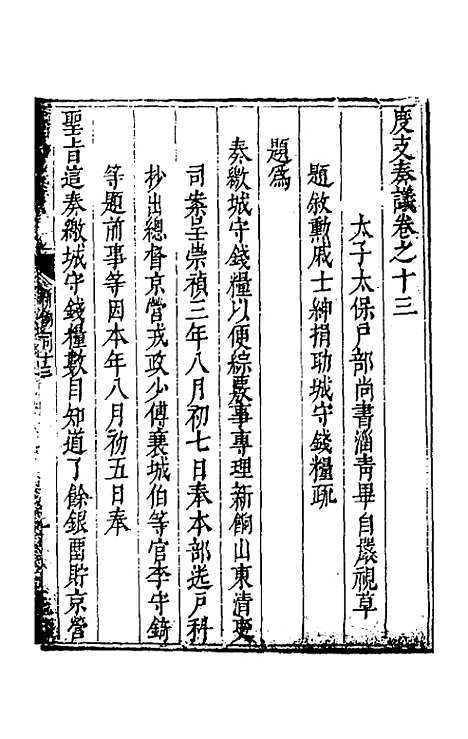 度支奏議卷之十三
太子太保戶部尚書淄青畢自嚴視草
題敘勳戚士紳捐助城守錢糧疏
題為
奏繳城守錢糧以便綜覈事專理新餉山東清吏
司案呈崇禎三年八月初七日奉本部送戶科
抄出總督京營戎政少傅襄城伯等官李守錡
等題前事等因本年八月初五日奉
聖旨這奏繳城守錢糧數目知道了餘銀留貯京營